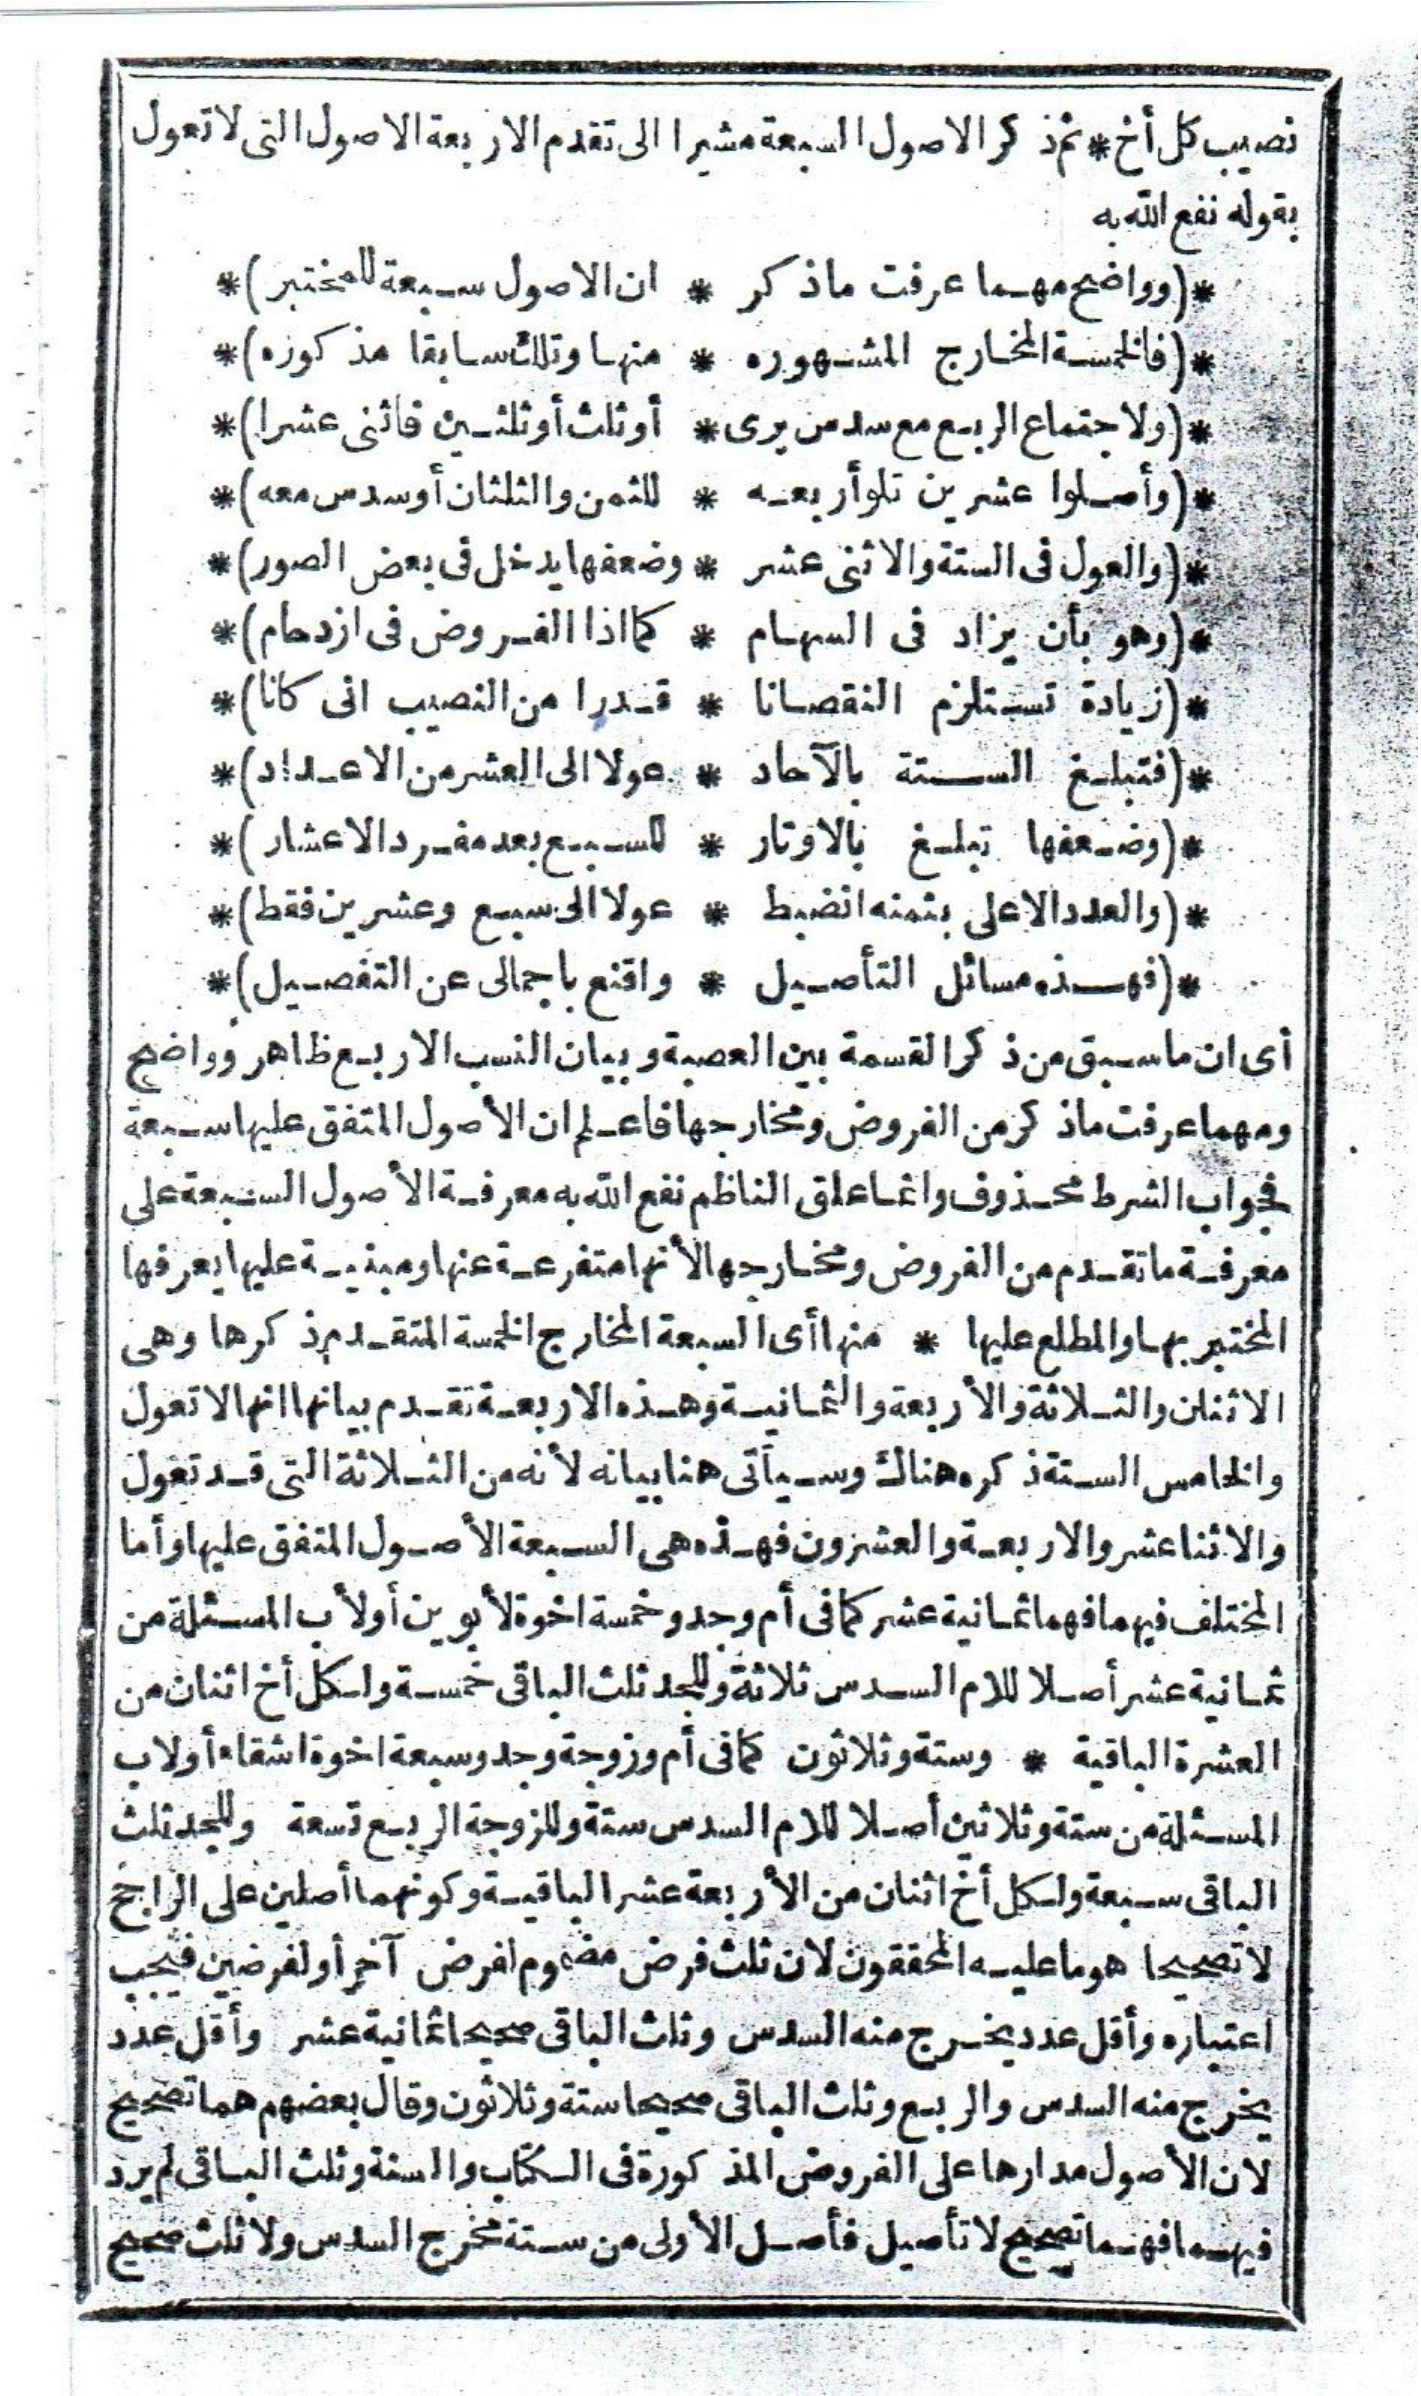 نصيب كل أخ * ثم ذكر الاصول السبعة مشيرا الى تقدم الاربعة الاصول التى لا تعول
بقوله نفع الله به
*(وواضح مهما عرفت ماذكر * ان الاصول سبعة للمختبر)*
*(فالخمسة المخارج المشهوره * منها وتلك سابقا مذكوره)*
*(ولاجتماع الربع مع سدس يرى * أوثلث أوثلثين فاثنى عشرا)*
*(وأصلوا عشرين تلوأربعه * للثمن والثلثان أوسدس معه)*
*(والعول فى الستة والاثنى عشر * وضعفها يدخل فى بعض الصور)*
*(وهو بأن يزاد فى السهام * كما اذا الفروض فى ازدحام)*
*(زيادة تستلزم النقصانا * قدرا من النصيب انى كانا)*
*(فتبلغ الستة بالآحاد * عولا الى العشر من الاعداد)*
*(وضعفها تبلغ بالاوتار * للسبع بعد مفرد الاعشار)*
*(والعدد الاعلى بثمنه انضبط * عولا الى سبع وعشرين فقط)*
*(فهذه مسائل التأصيل * واقنع باجمالى عن التفصيل)*
أى ان ماسبق من ذكر القسمة بين العصبة وبيان النسب الاربع ظاهر وواضح
ومهما عرفت ماذكر من الفروض ومخارجها فاعلم ان الأصول المتفق عليها سبعة
فجواب الشرط محذوف وانما علق الناظم نفع الله به معرفة الأصول السبعة على
معرفة ماتقدم من الفروض ومخارجها لأنها متفرعة عنها ومبنية عليها يعرفها
المختبر بها والمطلع عليها * منها أى السبعة المخارج الخمسة المتقدم ذكرها وهى
الاثنان والثلاثة والأربعة والثمانية وهذه الاربعة تقدم بيانها انها لا تعول
والخامس الستة ذكره هناك وسيأتى هنا بيانه لأنه من الثلاثة التى قد تعول
والاثنا عشر والاربعة والعشرون فهذه هى السبعة الأصول المتفق عليها وأما
المختلف فيهما فهما ثمانية عشر كما فى أم وجد وخمسة اخوة لأبوين أولأب المسئلة من
ثمانية عشر أصلا للام السدس ثلاثة وللجد ثلث الباقى خمسة ولكل أخ اثنان من
العشرة الباقية * وستة وثلاثون كما فى أم وزوجة وجد وسبعة اخوة اشقاء أولاب
المسئلة من ستة وثلاثين أصلا للام السدس ستة وللزوجة الربع تسعة وللجد ثلث
الباقى سبعة ولكل أخ اثنان من الأربعة عشر الباقية وكونهما أصلين على الراجح
لا تصحيحا هو ما عليه المحققون لان ثلث فرض مضموم لفرض آخر أولفرضين فيجب
اعتباره وأقل عدد يخرج منه السدس وثلث الباقى صحيحا ثمانية عشر وأقل عدد
يخرج منه السدس والربع وثلث الباقى صحيحا ستة وثلاثون وقال بعضهم هما تصحيح
لان الأصول مدارها على الفروض المذكورة فى الكتاب والسنة وثلث الباقى لم يرد
فيهما فهما تصحيح لا تأصيل فأصل الأولى من ستة مخرج السدس ولا ثلث صحيح